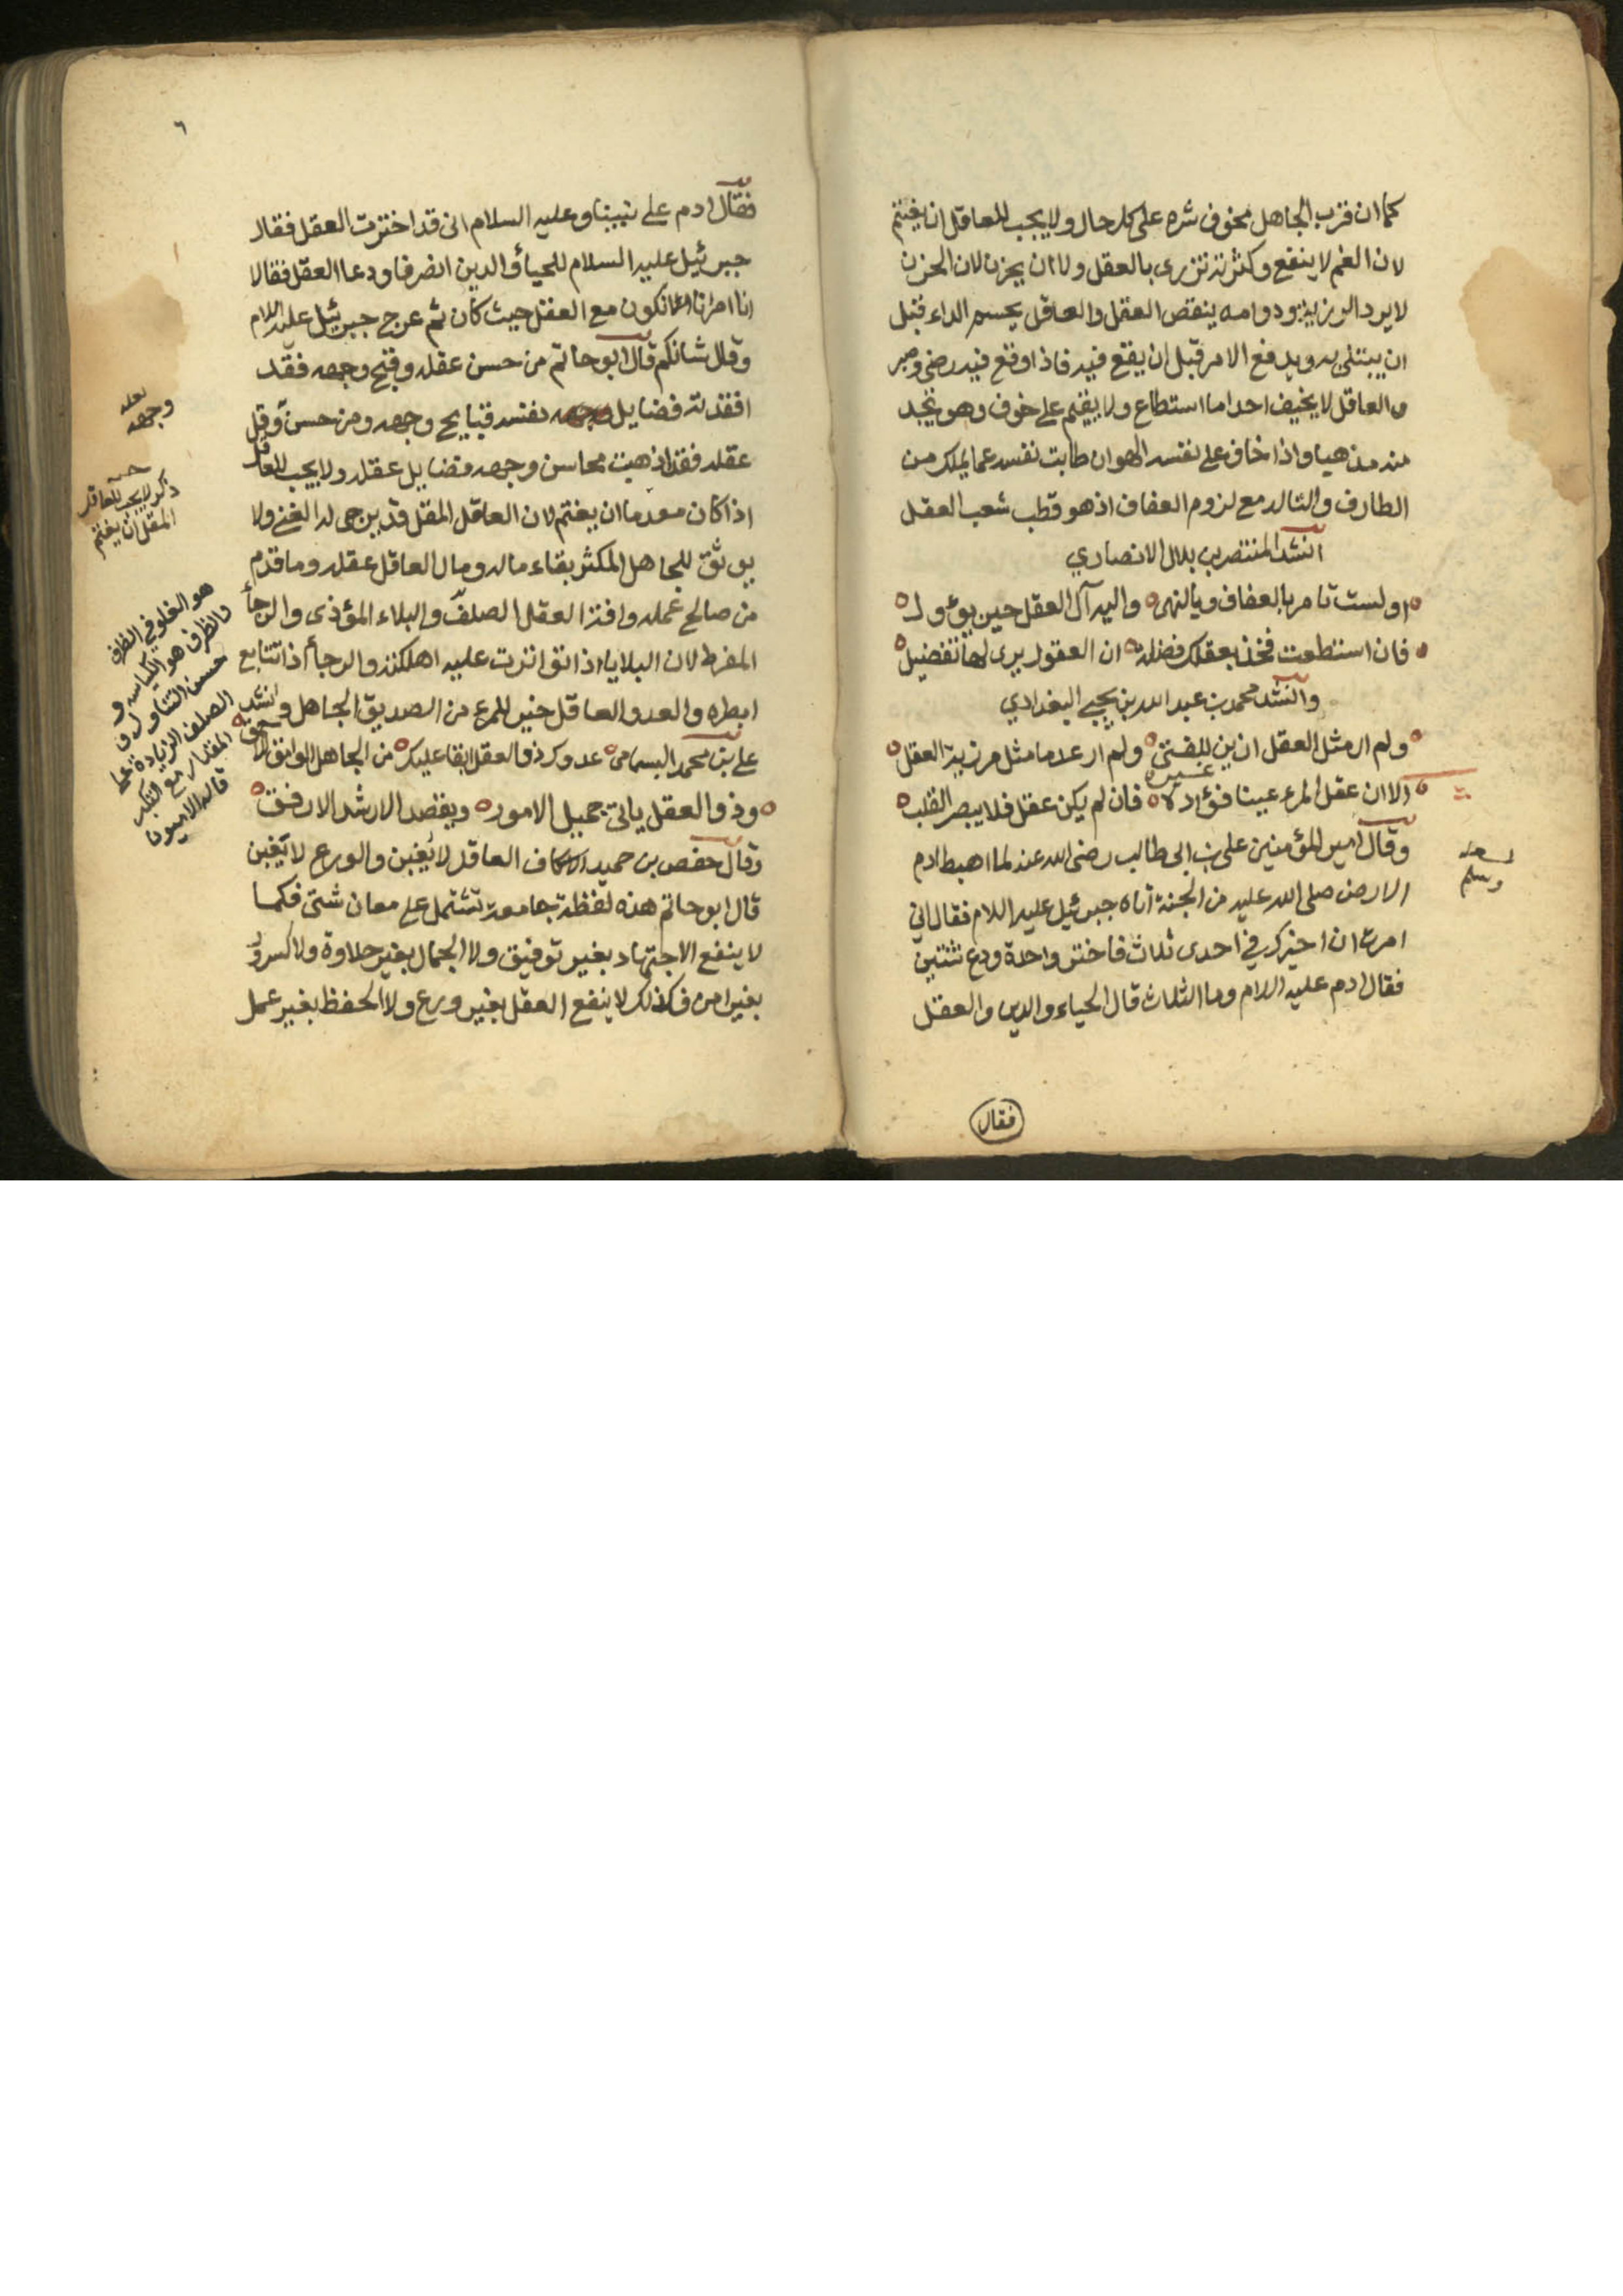 كما ان قرب الجاهل مخوف شره على كل حال ولا يجب للعاقل ان يغتم
لان الغم لا ينفع وكثرته تزرى بالعقل ولا ان يحزن لان الحزن
لا يرد المرزية ودوامه ينقص العقل والعاقل يحسم الداء قبل
ان يبتلى به ويدفع الامر قبل ان يقع فيه فاذا وقع فيه رضى وصبر
والعاقل لا يخيف احدا ما استطاع ولا يقيم على خوف وهو يجد
منه مذهبا واذا خاف على نفسه الهوان طابت نفسه عما يملك من
الطارف والتالد مع لزوم العفاف اذ هو قطب شعب العقل
انشد المنتصر بن بلال الانصاري
اولست تامر بالعفاف وبالنهى ه واليه آل العقل حين يؤول ه
فان استطعت فخذ بعقلك فضله ه ان العقول يرى لها تفضيل ه
وانشد محمد بن عبد الله بن يحيى البغدادي
ولم ار مثل العقل ازين للفتى ه ولم ار عدما مثل مرزية العقل ه
الا ان عقل المرء عينا فؤاده ه فان لم يكن عقل فلا يبصر القلب ه
غيره
وقال امير المؤمنين على بن ابى طالب رضى الله عنه لما اهبط ادم
الارض صلى الله عليه من الجنة اتاه جبرئيل عليه اللام فقال اني
امرت ان اخيرك في احدى ثلاث فاختر واحدة ودع ثنتين
فقال ادم عليه اللام وما الثلاث قال الحياء والدين والعقل
فقال
لعله
وسلم
٦
فقال ادم على نبينا وعليه السلام انى قد اخترت العقل فقال
جبرئيل عليه السلام للحياء والدين انصرفا ودعا العقل فقالا
انا امرنا ان نكون مع العقل حيث كان ثم عرج جبرئيل عليه اللام
وقال شانكم قال ابو حاتم من حسن عقله وقبح وجهه فقد
افقدته فضايل نفسه قبايح وجهه ومن حسن وقل
عقله فقد اذهبت محاسن وجهه فضايل عقله ولا يجب للعاقل
اذا كان معدما ان يغتم لان العاقل المقل قد يرجى له الغنى ولا
يوثق للجاهل المكثر بقاء ماله ومال العاقل عقله وما قدم
من صالح عمله وافة العقل الصلف والبلاء المؤذى والرجأ
المفرط لان البلايا اذا تواترت عليه اهلكته والرجأ اذا تتابع
ابطره والعدو العاقل خير للمرء من الصديق الجاهل وانشد
على بن محمد البسامى ه عدوك ذو العقل ابقا عليك ه من الجاهل الوامق الاحمق ه
وذو العقل ياتى جميل الامور ه ويقصد الارشد الارفق ه
وقال حفص بن حميد الاكاف العاقل لا يغبن والورع لا يغبن
قال ابو حاتم هذه لفظة جامعة تشتمل على معان شتى فكما
لا ينفع الاجتهاد بغير توفيق ولا الجمال بغير حلاوة ولا السرور
بغير امن فكذلك لا ينفع العقل بغير ورع ولا الحفظ بغير عمل
لعله
وجهه
ذكر لا يجب للعاقل
المقل ان يغتم
هو الغلو في الظرف
والظرف هو الكياسه و
حسن التناول و
الصلف الزيادة على
المقدار مع التكبر